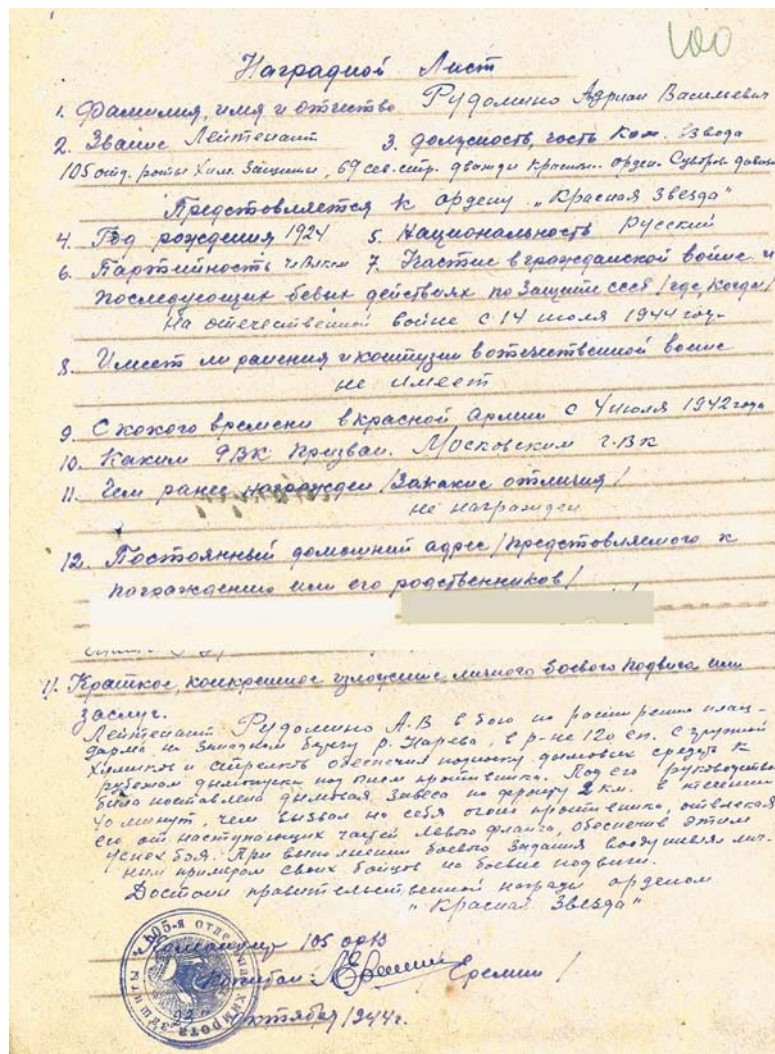 100
Наградной Лист
1. Фамилия, имя и отчество Рудомино Адриан Васильевич
2. Звание Лейтенант 3. должность, часть Ком. взвода
105 отд. роты Хим. Защиты, 69 сев. стр. дважды Красноз. орден. Суворова дивиз
Представляется к ордену "Красная Звезда"
4. Год рождения 1924 5. Национальность Русский
6. Партийность чл Влксм 7. Участие в гражданской войне и
последующих боевых действиях по защите СССР /где, когда/
На отечественной войне с 14 июля 1944 году
8. Имеет ли ранения и контузии в отечественной войне
не имеет
9. С какого времени в красной Армии с 4 июля 1942 года
10. Каким РВК призван. Московским г.ВК
11. Чем ранее награжден /За какие отличия/
не награжден
12. Постоянный домашний адрес /представляемого к
награждению или его родственников/
Краткое, конкретное изложение личного боевого подвига или
заслуг.
Лейтенант Рудомино А.В в бою по расширению плац-
дарма на Западном берегу р. Нарева, в р-не 120 сп. с группой
Химиков и стрелков обеспечил подноску дымовых средств к
рубежам дымопуска под огнем противника. Под его руководством
была поставлена дымовая завеса по фронту 2 км. в течении
40 минут, чем вызвал на себя огонь противника, отвлекая
его от наступающих частей левого фланга, обеспечив этим
успех боя. При выполнении боевого задания воодушевлял лич-
ным примером своих бойцов на боевые подвиги.
Достоин правительственной награды орденом
"Красная Звезда"
Командир 105 орхз
Капитан: Еремин /
23 октября 1944г.
105-я отдельная химрота защиты